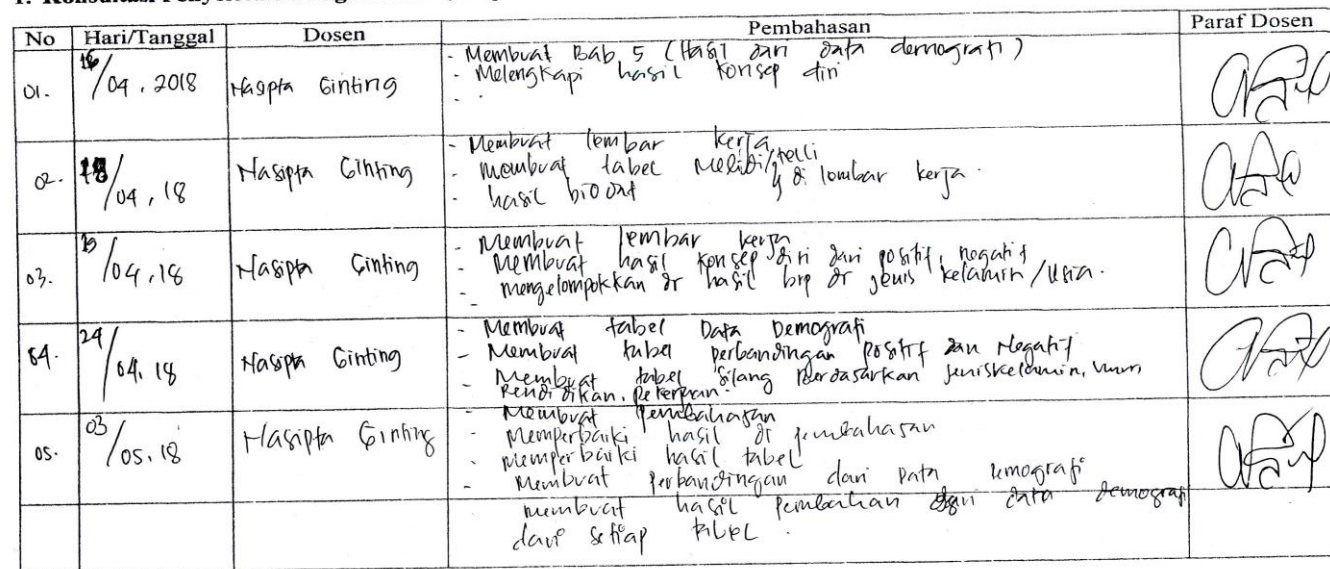 No Hari/Tanggal Dosen Pembahasan Paraf Dosen
01. 16/04, 2018 Nasipta Ginting
- Membuat Bab 5 (Hasil dari data demografi)
- Melengkapi hasil konsep diri
- .
02. 18/04, 18 Nasipta Ginting
- Membuat lembar kerja
- membuat tabel
- hasil di lembar kerja.
03. 04, 18 Nasipta Ginting
- Membuat lembar kerja
- Membuat hasil konsep diri dari positif, negatif
- mengelompokkan dr hasil brp dr jenis kelamin/usia.
-
04. 24/04, 18 Nasipta Ginting
- Membuat tabel Data Demografi
- Membuat tabel perbandingan Positif dan Negatif
- Membuat tabel silang berdasarkan jeniskelamin, umur,
Pendidikan, pekerjaan.
05. 03/05, 18 Nasipta Ginting
- Membuat pembahasan
- Memperbaiki hasil di pembahasan
- Memperbaiki hasil tabel
- Membuat perbandingan dari Data demografi
membuat hasil dari data demografi
dari setiap tabel.